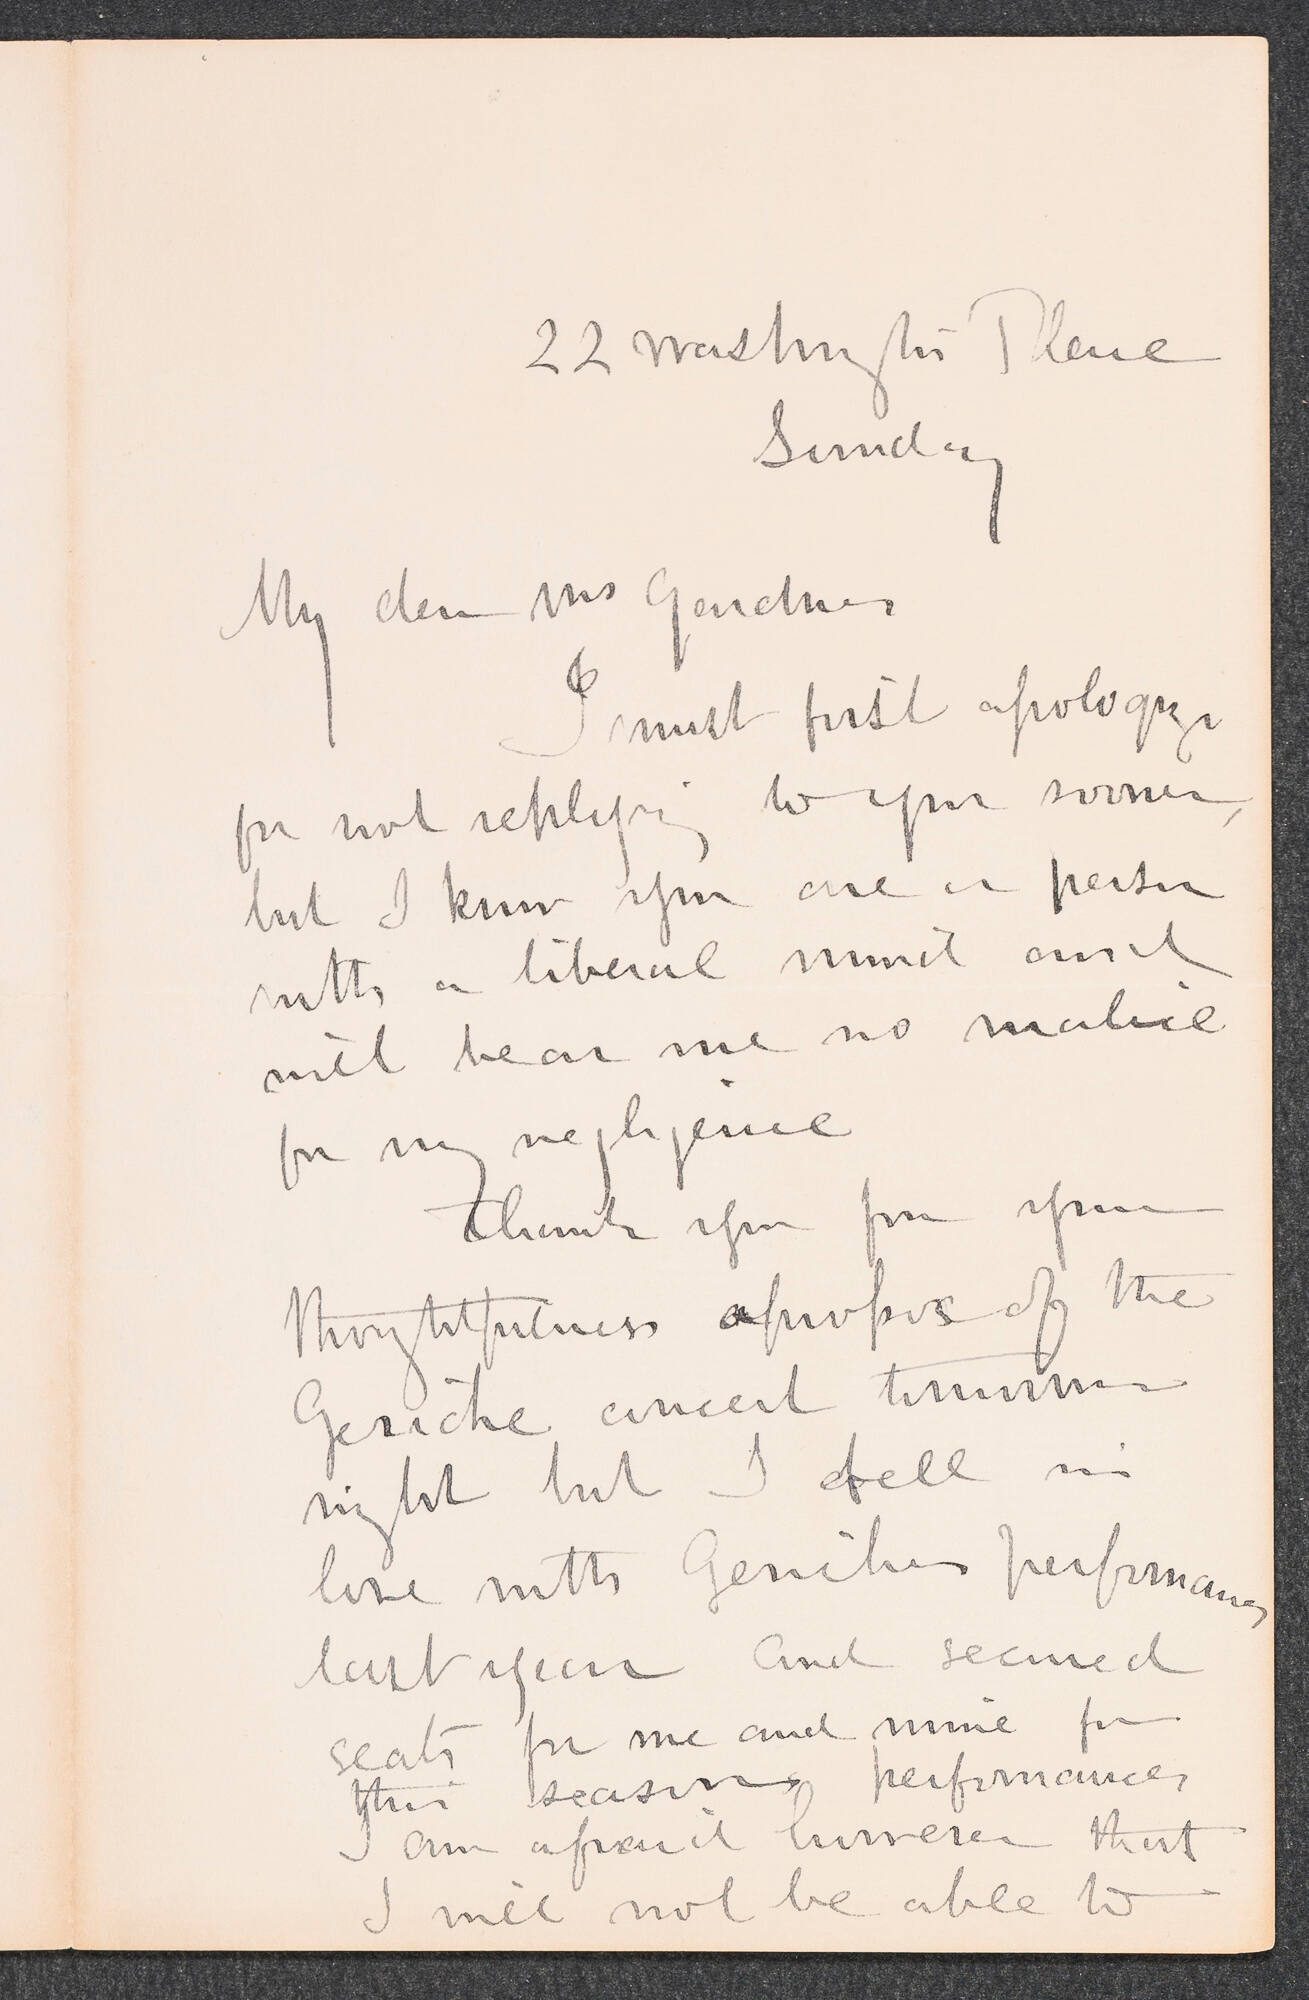 22 Washington Place
Sunday
My dear Mrs Gardner
I must first apologize
for not replying to your sooner,
but I know you are a person
with a liberal mind and
will bear me no malice
for my negligence
Thank you for your
thoughtfulness apropos of the
Gericke concert tomorrow
night but I fell in
love with Gerickes performances
last year and secured
seats for me and mine for
this seasons performances
I am afraid however that
I will not be able to